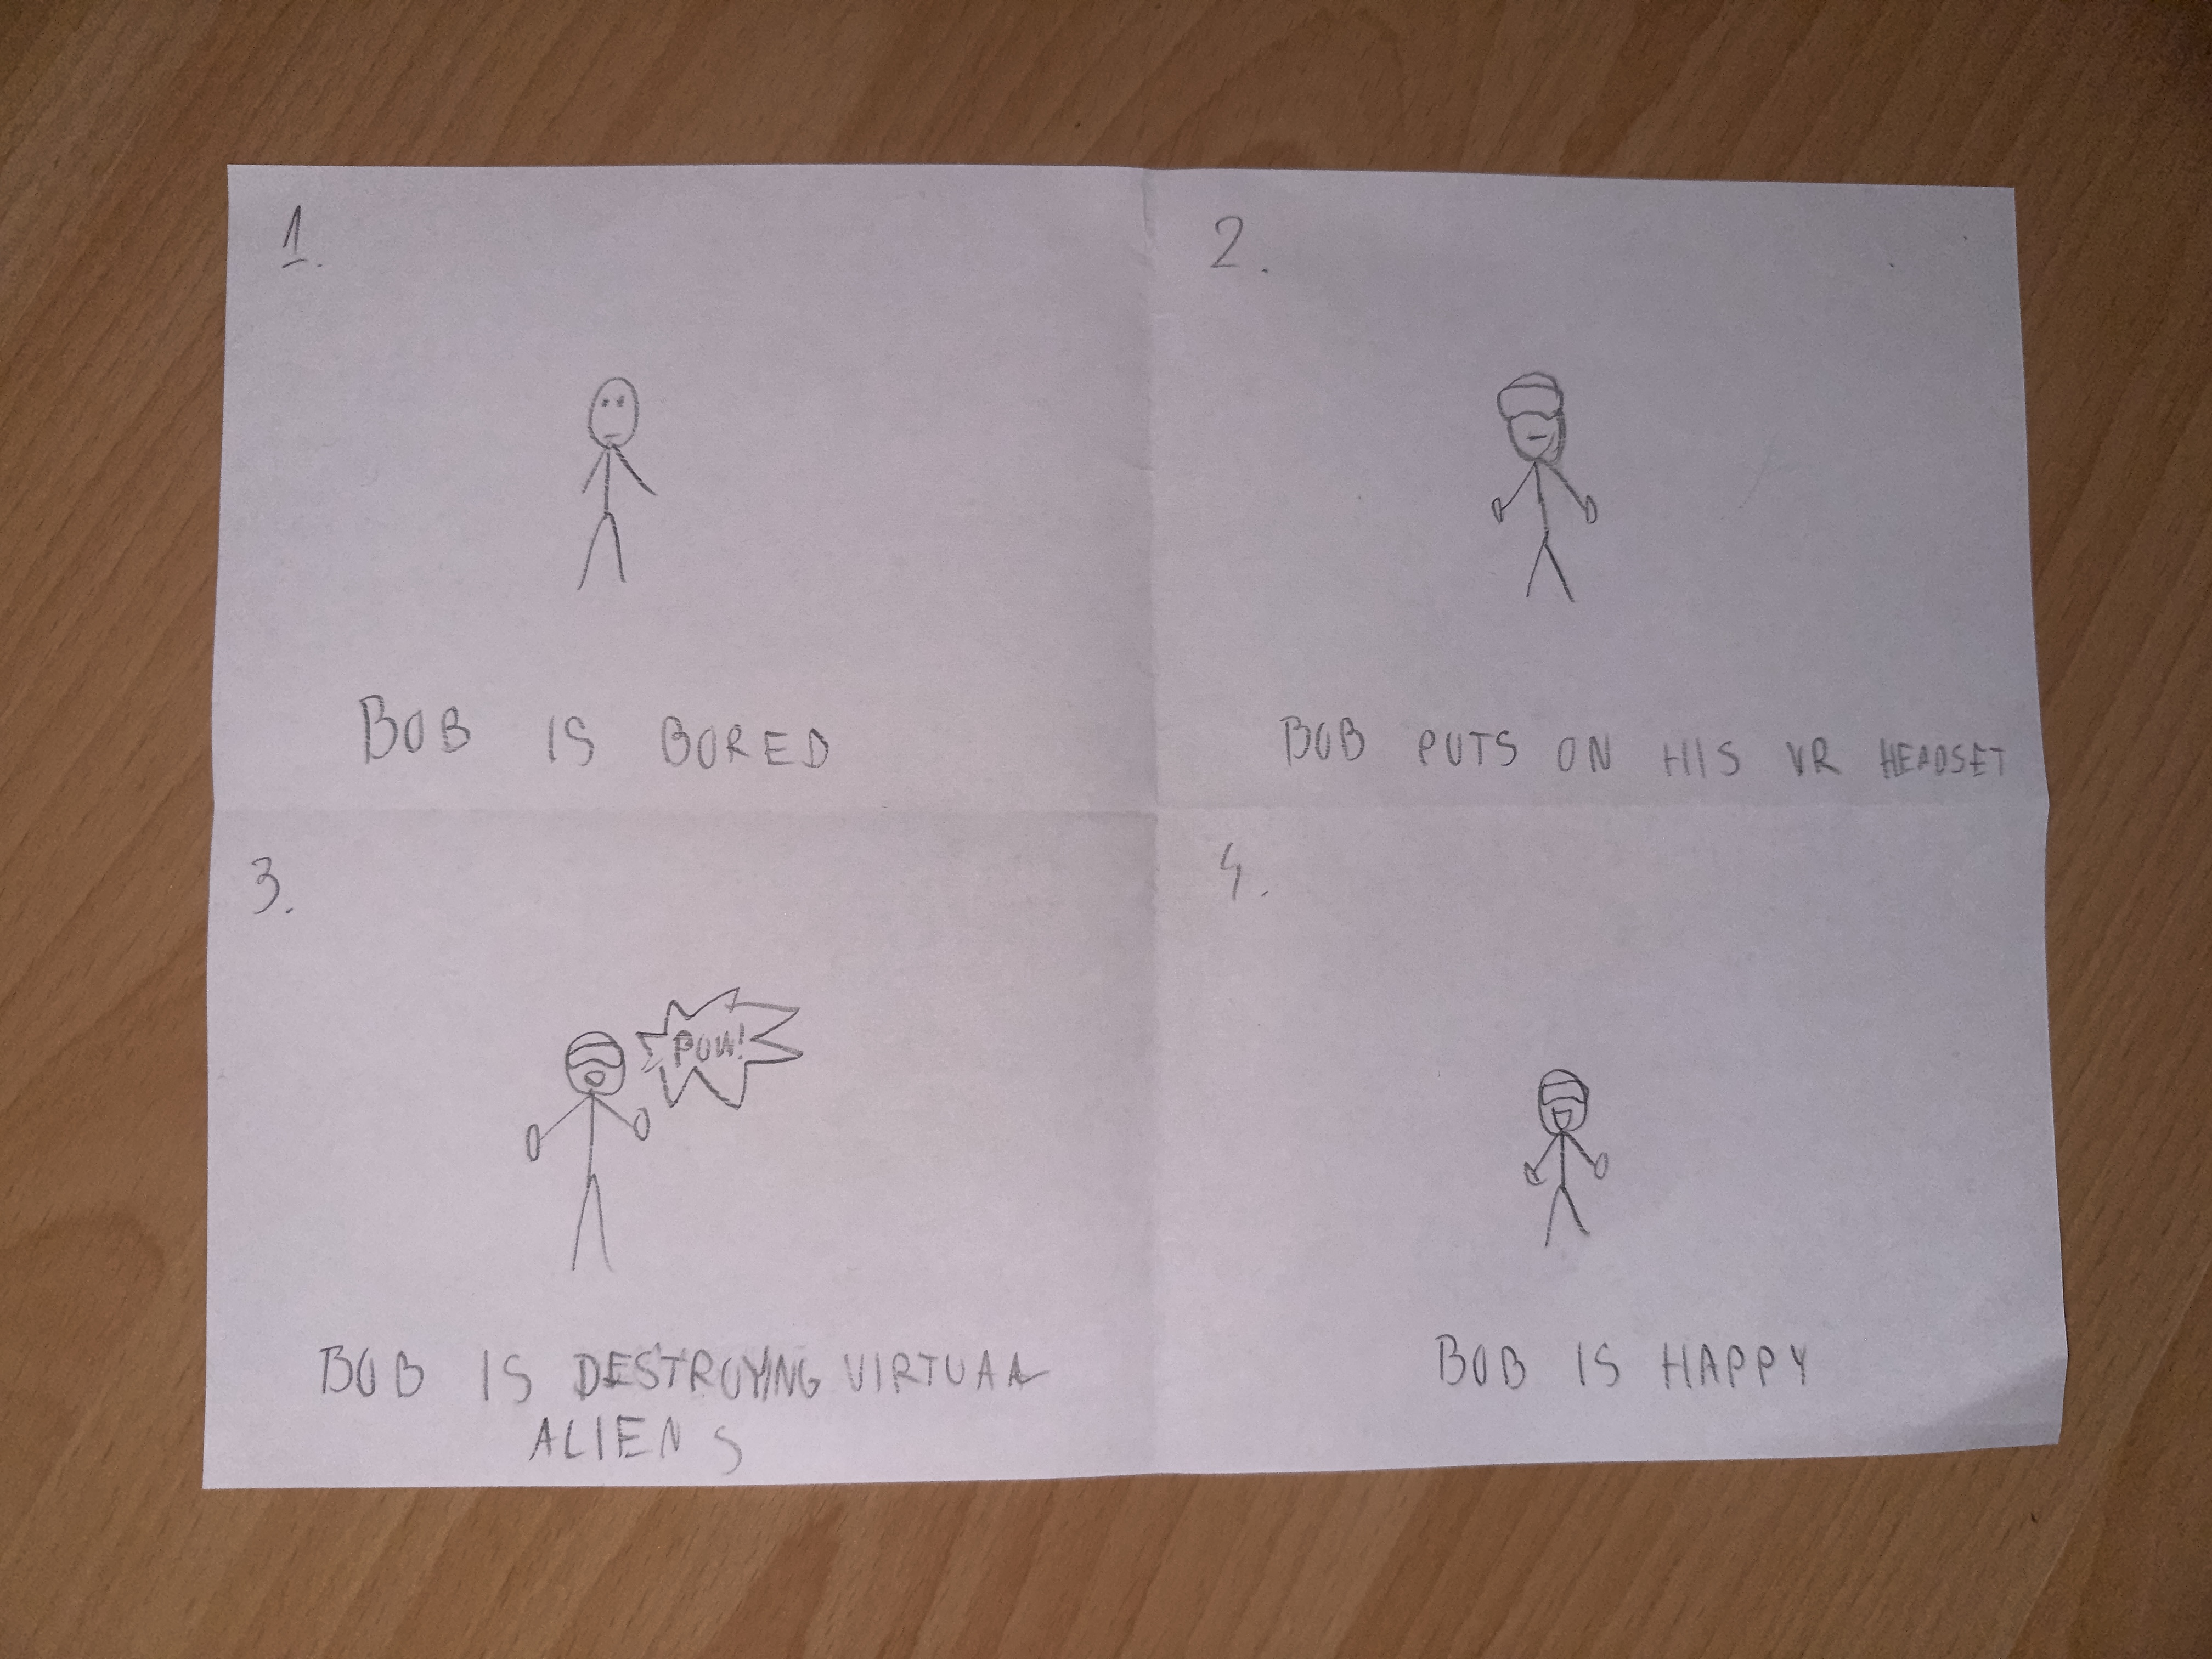 1.
BOB IS BORED
2.
BOB PUTS ON HIS VR HEADSET
3.
POW!
BOB IS DESTROYING VIRTUAL
ALIENS
4.
BOB IS HAPPY